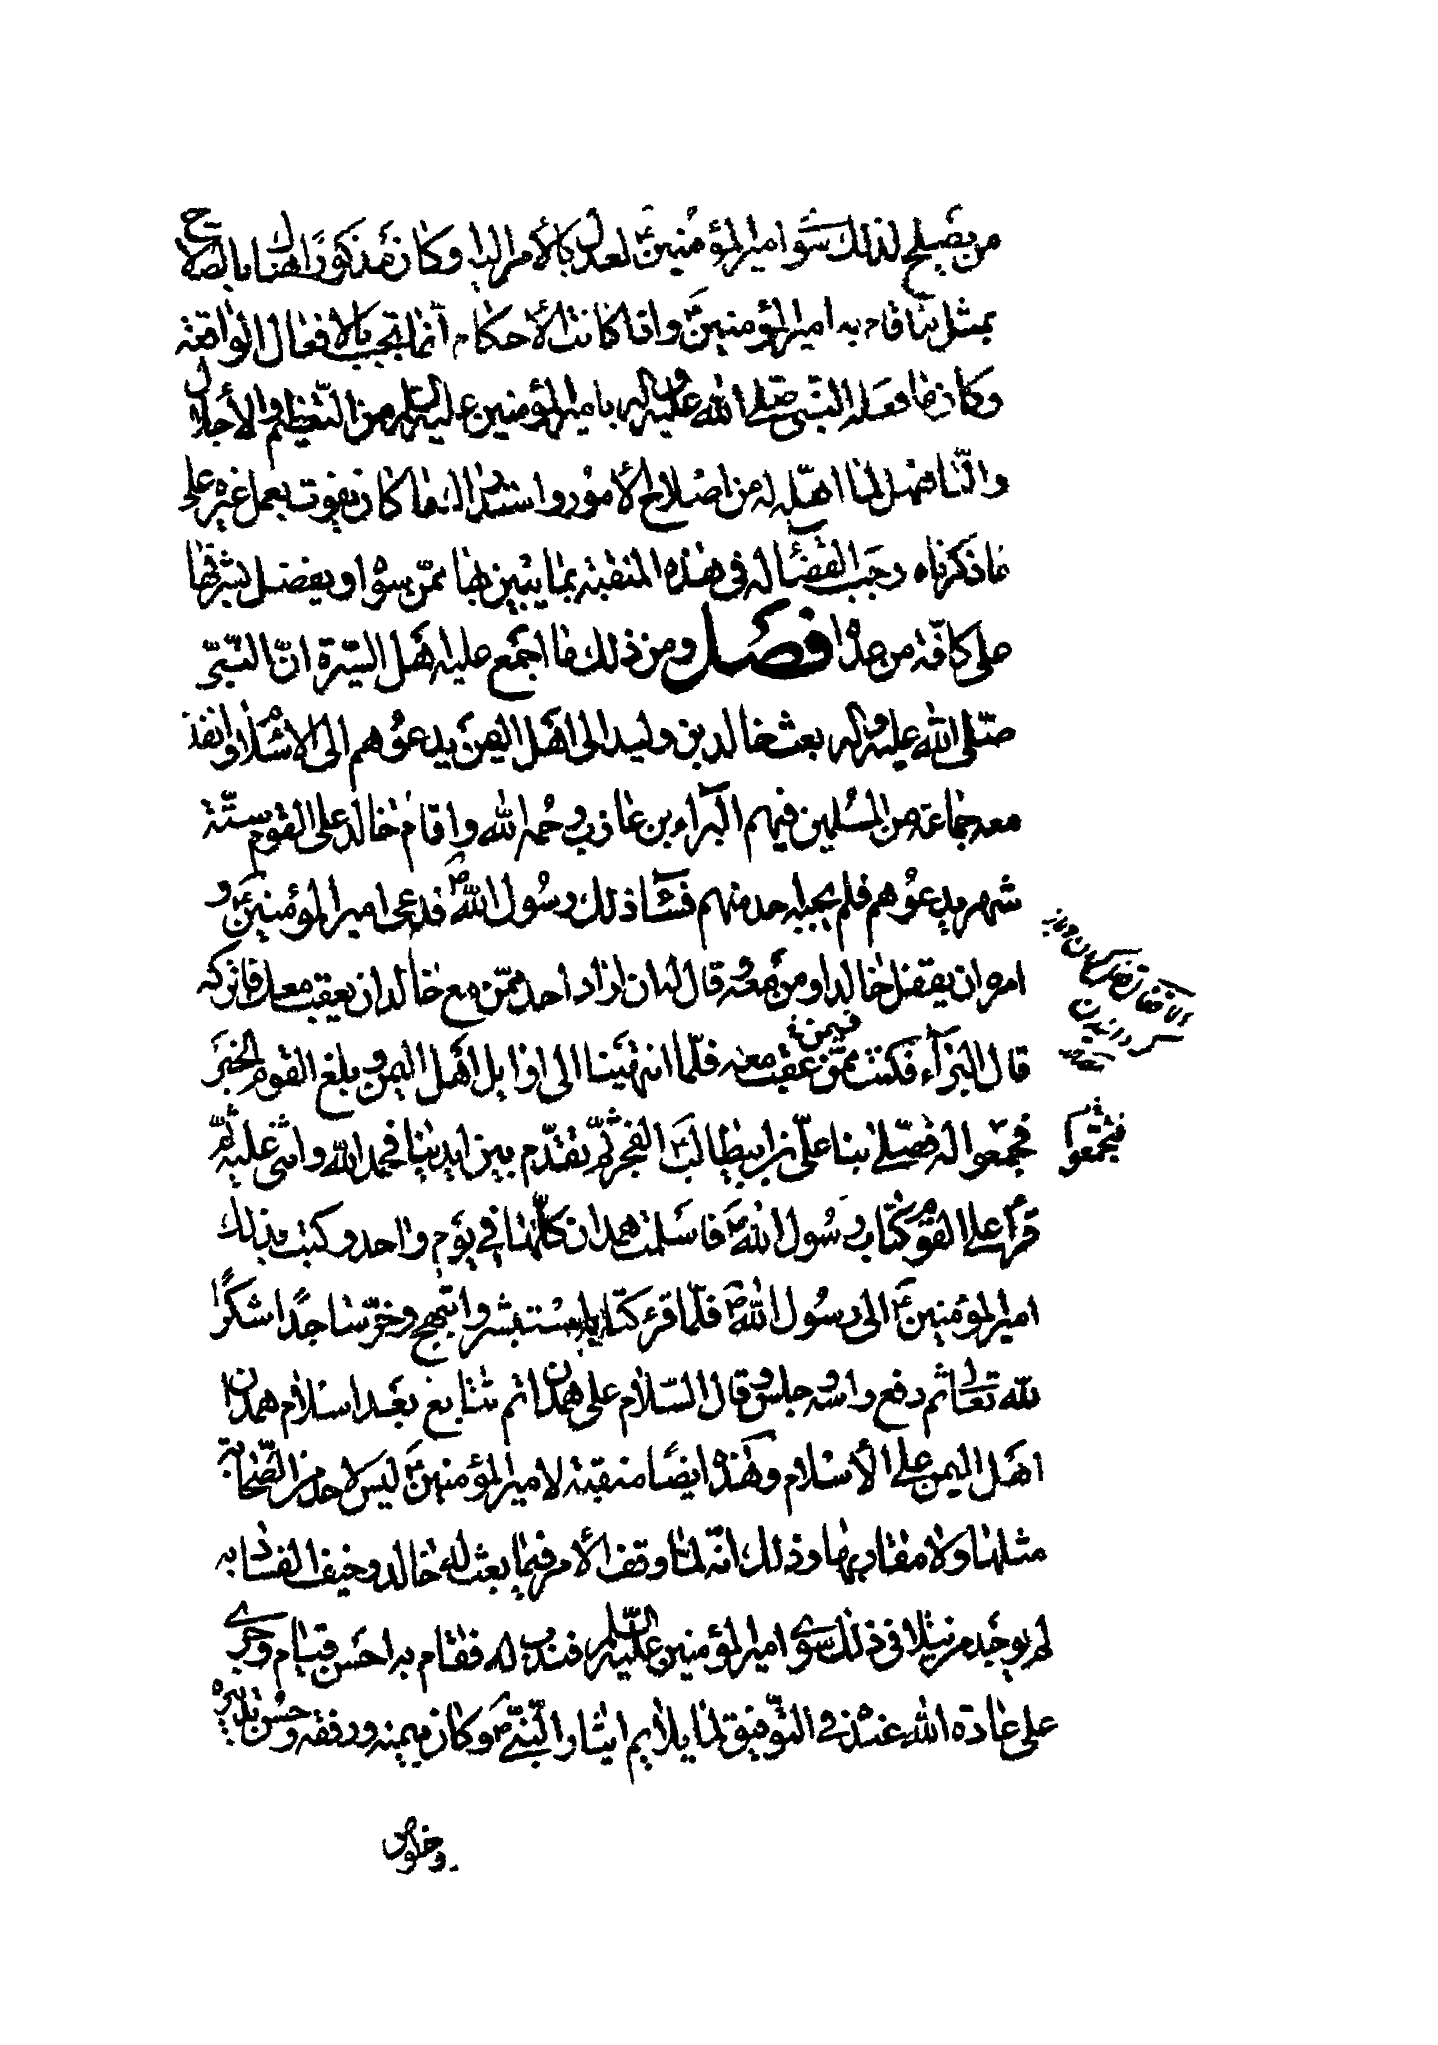 من يصلح لذلك سوى امير المؤمنين ع لعدل بالأمر اليه وكان مذكورا هناك بالصلاح
بمثل ما قام به امير المؤمنين ع واذا كانت الأحكام انما تجب بالافعال الواقعة
وكان ما فعله النبي صلى الله عليه وآله بامير المؤمنين عليه السلم من التعظيم والأجلال
والتاهيل لما اهله له من اصلاح الأمور واستدراك ما كان يفوت بعمل غيره على
ما ذكرناه وجب القضاء له في هذه المنقبة بما يبين بها ممن سواه ويفضل بشرفها
على كافة من عداه فصل ومن ذلك ما اجمع عليه اهل السيرة ان النبي
صلى الله عليه وآله بعث خالد بن وليد الى اهل اليمن يدعوهم الى الاسلام وانفذ
معه جماعة من المسلمين فيهم البراء بن عازب رحمه الله واقام خالد على القوم ستة
شهر يدعوهم فلم يجبه احد منهم فساء ذلك رسول الله ص فدعى امير المؤمنين ع و
امره ان يقفل خالدا ومن معه وقال له ان اراد احد ممن مع خالد ان يعقب معك فاتركه
قال البراء فكنت ممن عقب معه فلما انتهينا الى اوايل اهل اليمن وبلغ القوم الخبر
فيمن
فجمعوا له فصلى بنا علي بن ابيطالب ع الفجر ثم تقدم بين ايدينا فحمد الله واثنى عليه ثم
فتجمعوا
قرأ على القوم كتاب رسول الله ص فاسلمت همدان كلها في يوم واحد وكتب بذلك
امير المؤمنين ع الى رسول الله ص فلما قرء كتابه استبشر وابتهج وخر ساجدا شكرا
لله تعالى ثم رفع راسه وجلس وقال السلام على همدان ثم تتابع بعد اسلام همدان
اهل اليمن على الأسلام وهذه ايضا منقبة لامير المؤمنين ع ليس لاحد من الصحابة
مثلها ولا مقاربها وذلك انه لما وقف الأمر فيما بعث له خالد وخيف الفساد به
لم يوجد من يتلافى ذلك سوى امير المؤمنين عليه السلم فندب له فقام به احسن قيام وجرى
على عادة الله عنده في التوفيق لما يلايم ايثار النبي ص وكان بيمنه ورفقه وحسن تدبيره
وخلوص